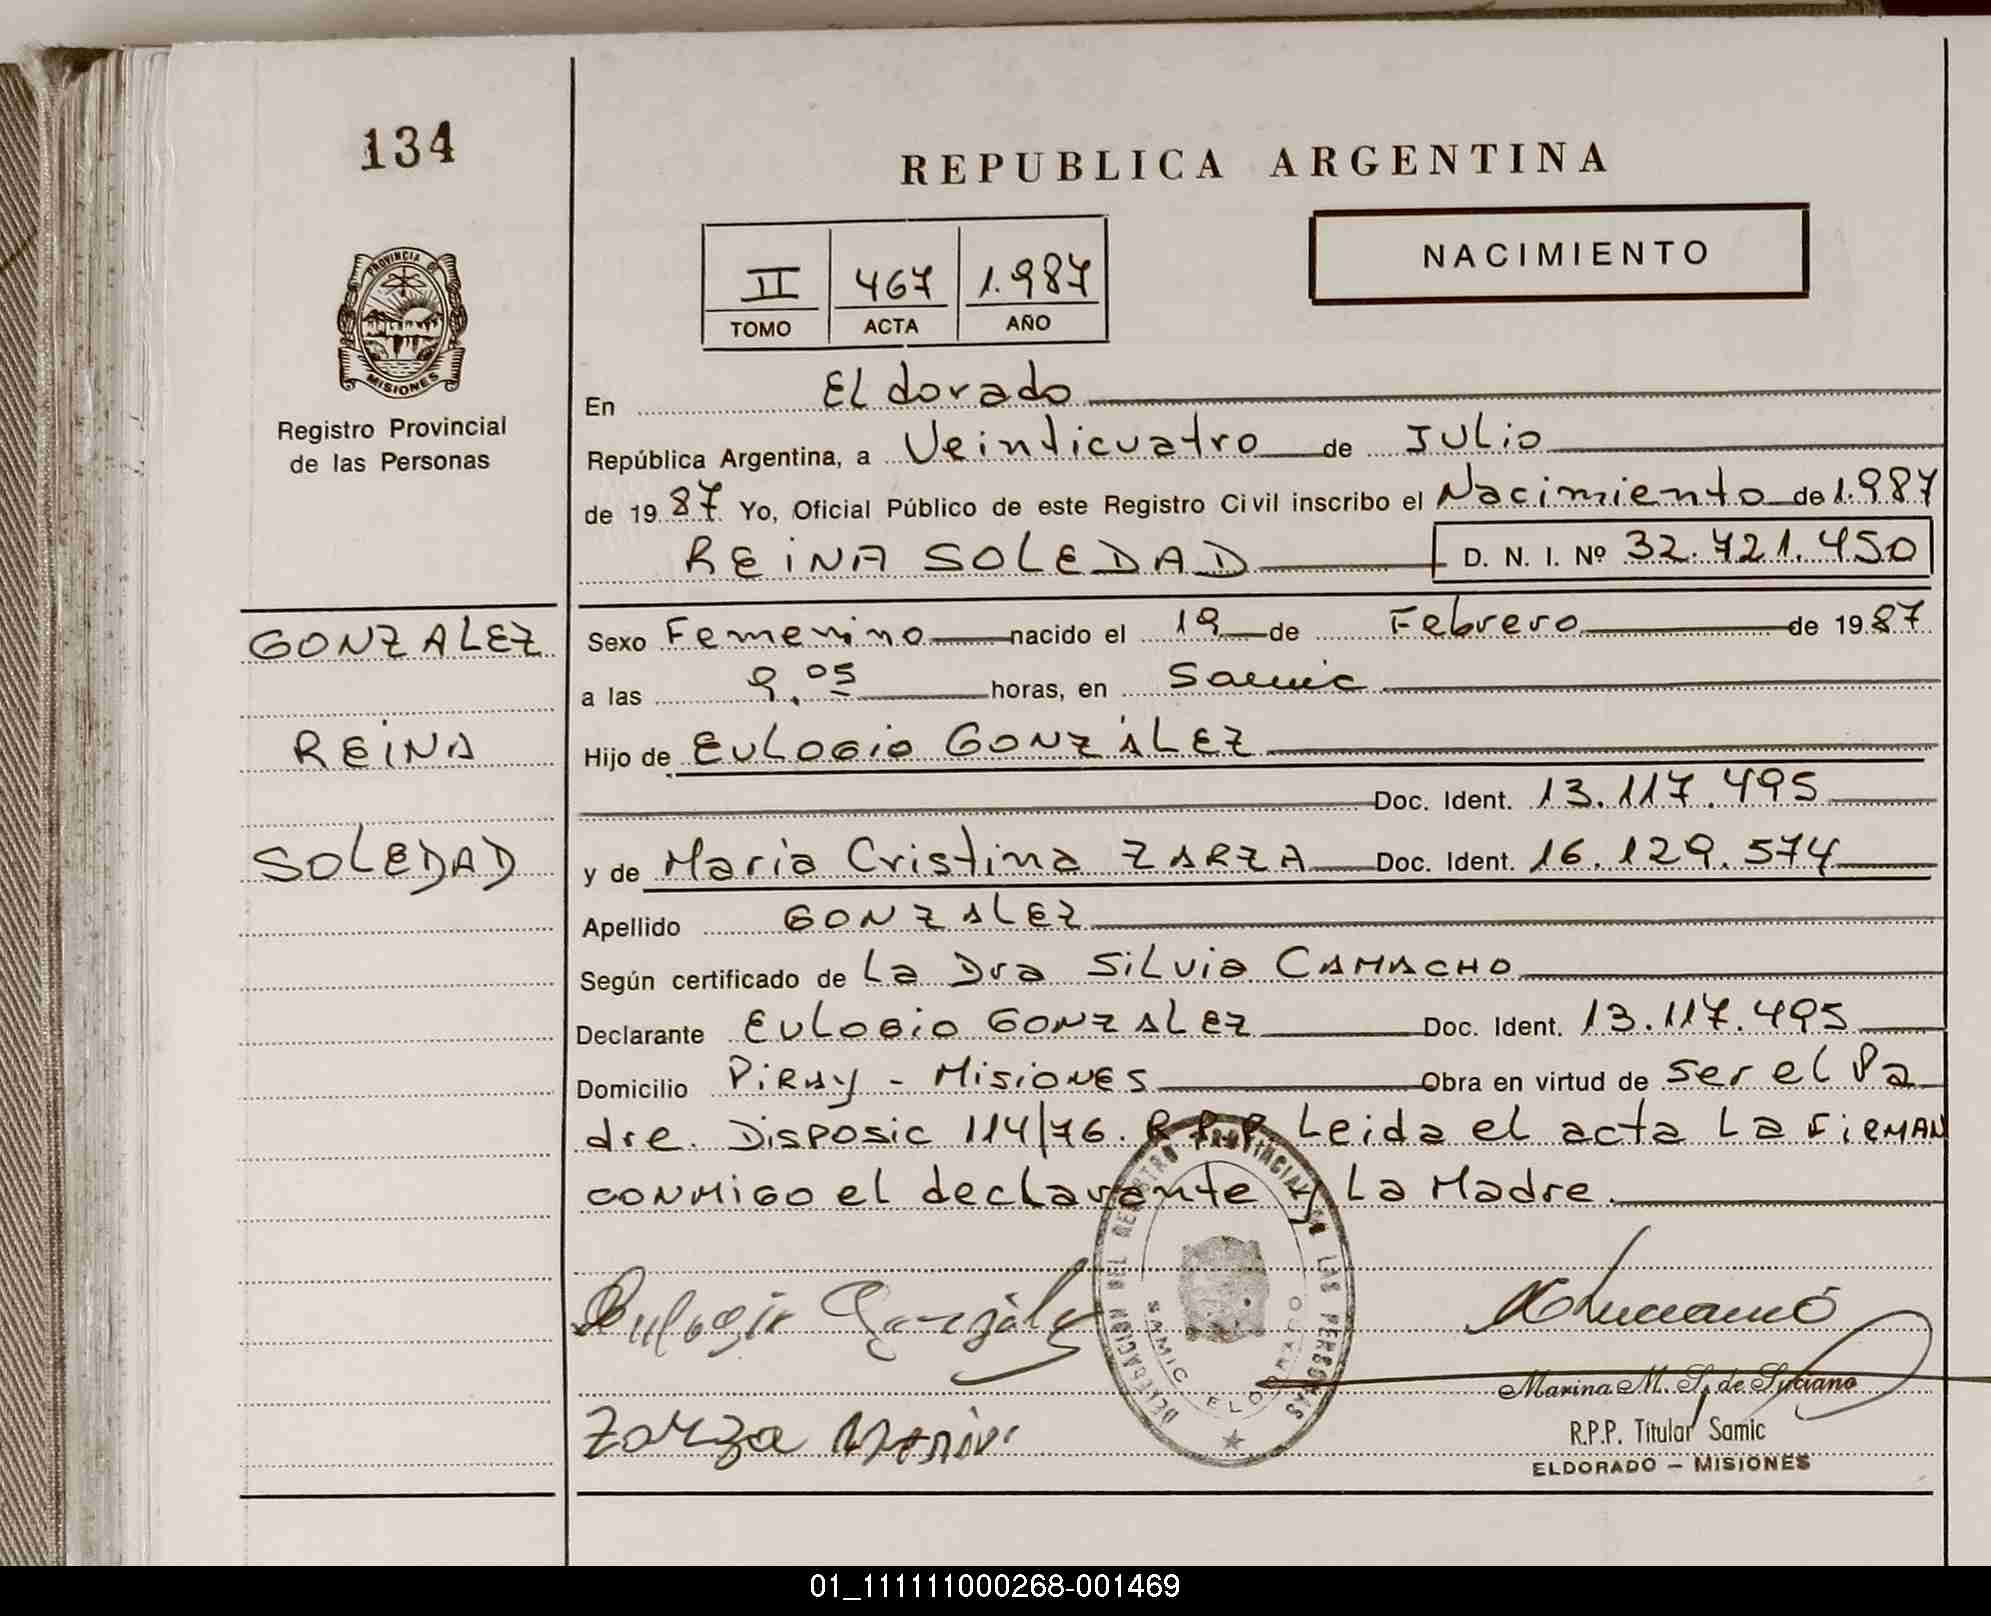 134
REPUBLICA ARGENTINA
NACIMIENTO
II 467 1.987
TOMO ACTA AÑO
PROVINCIA DE
MISIONES
Registro Provincial
de las Personas
En El dorado
República Argentina, a Veinticuatro de Julio
de 19 87 Yo, Oficial Público de este Registro Civil inscribo el Nacimiento de 1.987
REINA SOLEDAD D. N. I. Nº 32.721.450
GONZALEZ
REINA
SOLEDAD
Sexo Femenino nacido el 19 de Febrero de 19 87
a las 9.05 horas, en Samic
Hijo de EULOGIO GONZÁLEZ
Doc. Ident. 13.117.495
y de Maria Cristina ZARZA Doc. Ident. 16.129.574
Apellido GONZALEZ
Según certificado de La Dra Silvia CAMACHO
Declarante EULOGIO GONZALEZ Doc. Ident. 13.117.495
Domicilio PIRAY - MISIONES Obra en virtud de ser el Pa
dre. Disposic 114/76. R.P.P. Leida el acta La FIRMAN
CONMIGO el declarante y La Madre.
DELEGACION DEL REGISTRO PROVINCIAL DE LAS PERSONAS
SAMIC ELDORADO
Eulogio González
Zarza
Marina M. S. de Luciano
R.P.P. Titular Samic
ELDORADO - MISIONES
01_111111000268-001469